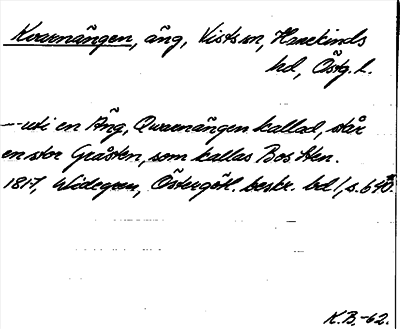 Kvarnängen, äng, Vists sn, Hanekinds
hd, Östg. l.
— uti en Äng, Qwarnängen kallad, står
en stor Gråsten, som kallas Bos sten.
1817, Widegren, Östergötl. beskr. bd 1, s. 640.
K.B. -62.